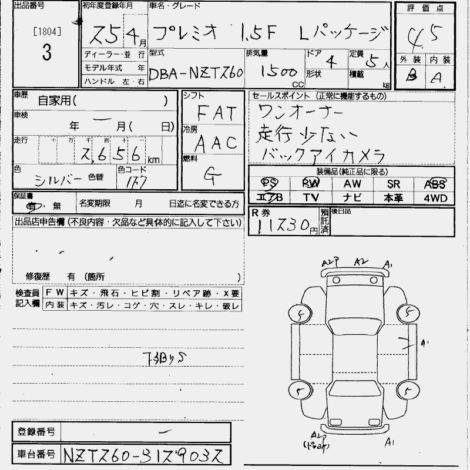 出品番号 初年度登録年月 車名・グレード 評価点
[1804]
3
25年4月 プレミオ 1.5F Lパッケージ 4.5
ディーラー・並行 型式 排気量 ドア 定員 外装 内装
モデル年式 年 DBA-NZT260 1500 4 5人 B A
ハンドル 左・右 形状 積載 kg
車歴 自家用( ) シフト セールスポイント (正常に機能するもの)
FAT ワンオーナー
車検 ー年ー月(ー日) 冷房 走行少ない
AAC バックアイカメラ
走行 2,656km 燃料
G
色 シルバー 色替 色コード 装備品(純正品に限る)
PS PW AW SR ABS
エアB TV ナビ 本革 4WD
保証書
有・無 名変期限 月 日迄に名変できる方
R券 11230円 預託済 後日品
出品店申告欄(不良内容・欠品など具体的に記入して下さい)
修復歴 有(箇所 )
検査員記入欄 FW キズ・飛石・ヒビ割・リペア跡・X要
内装 キズ・汚レ・コゲ・穴・スレ・キレ・破レ
A2P A2 A1
5 5
A1
5 5
A2P A1
登録番号 ー
車台番号 NZT260-3129032